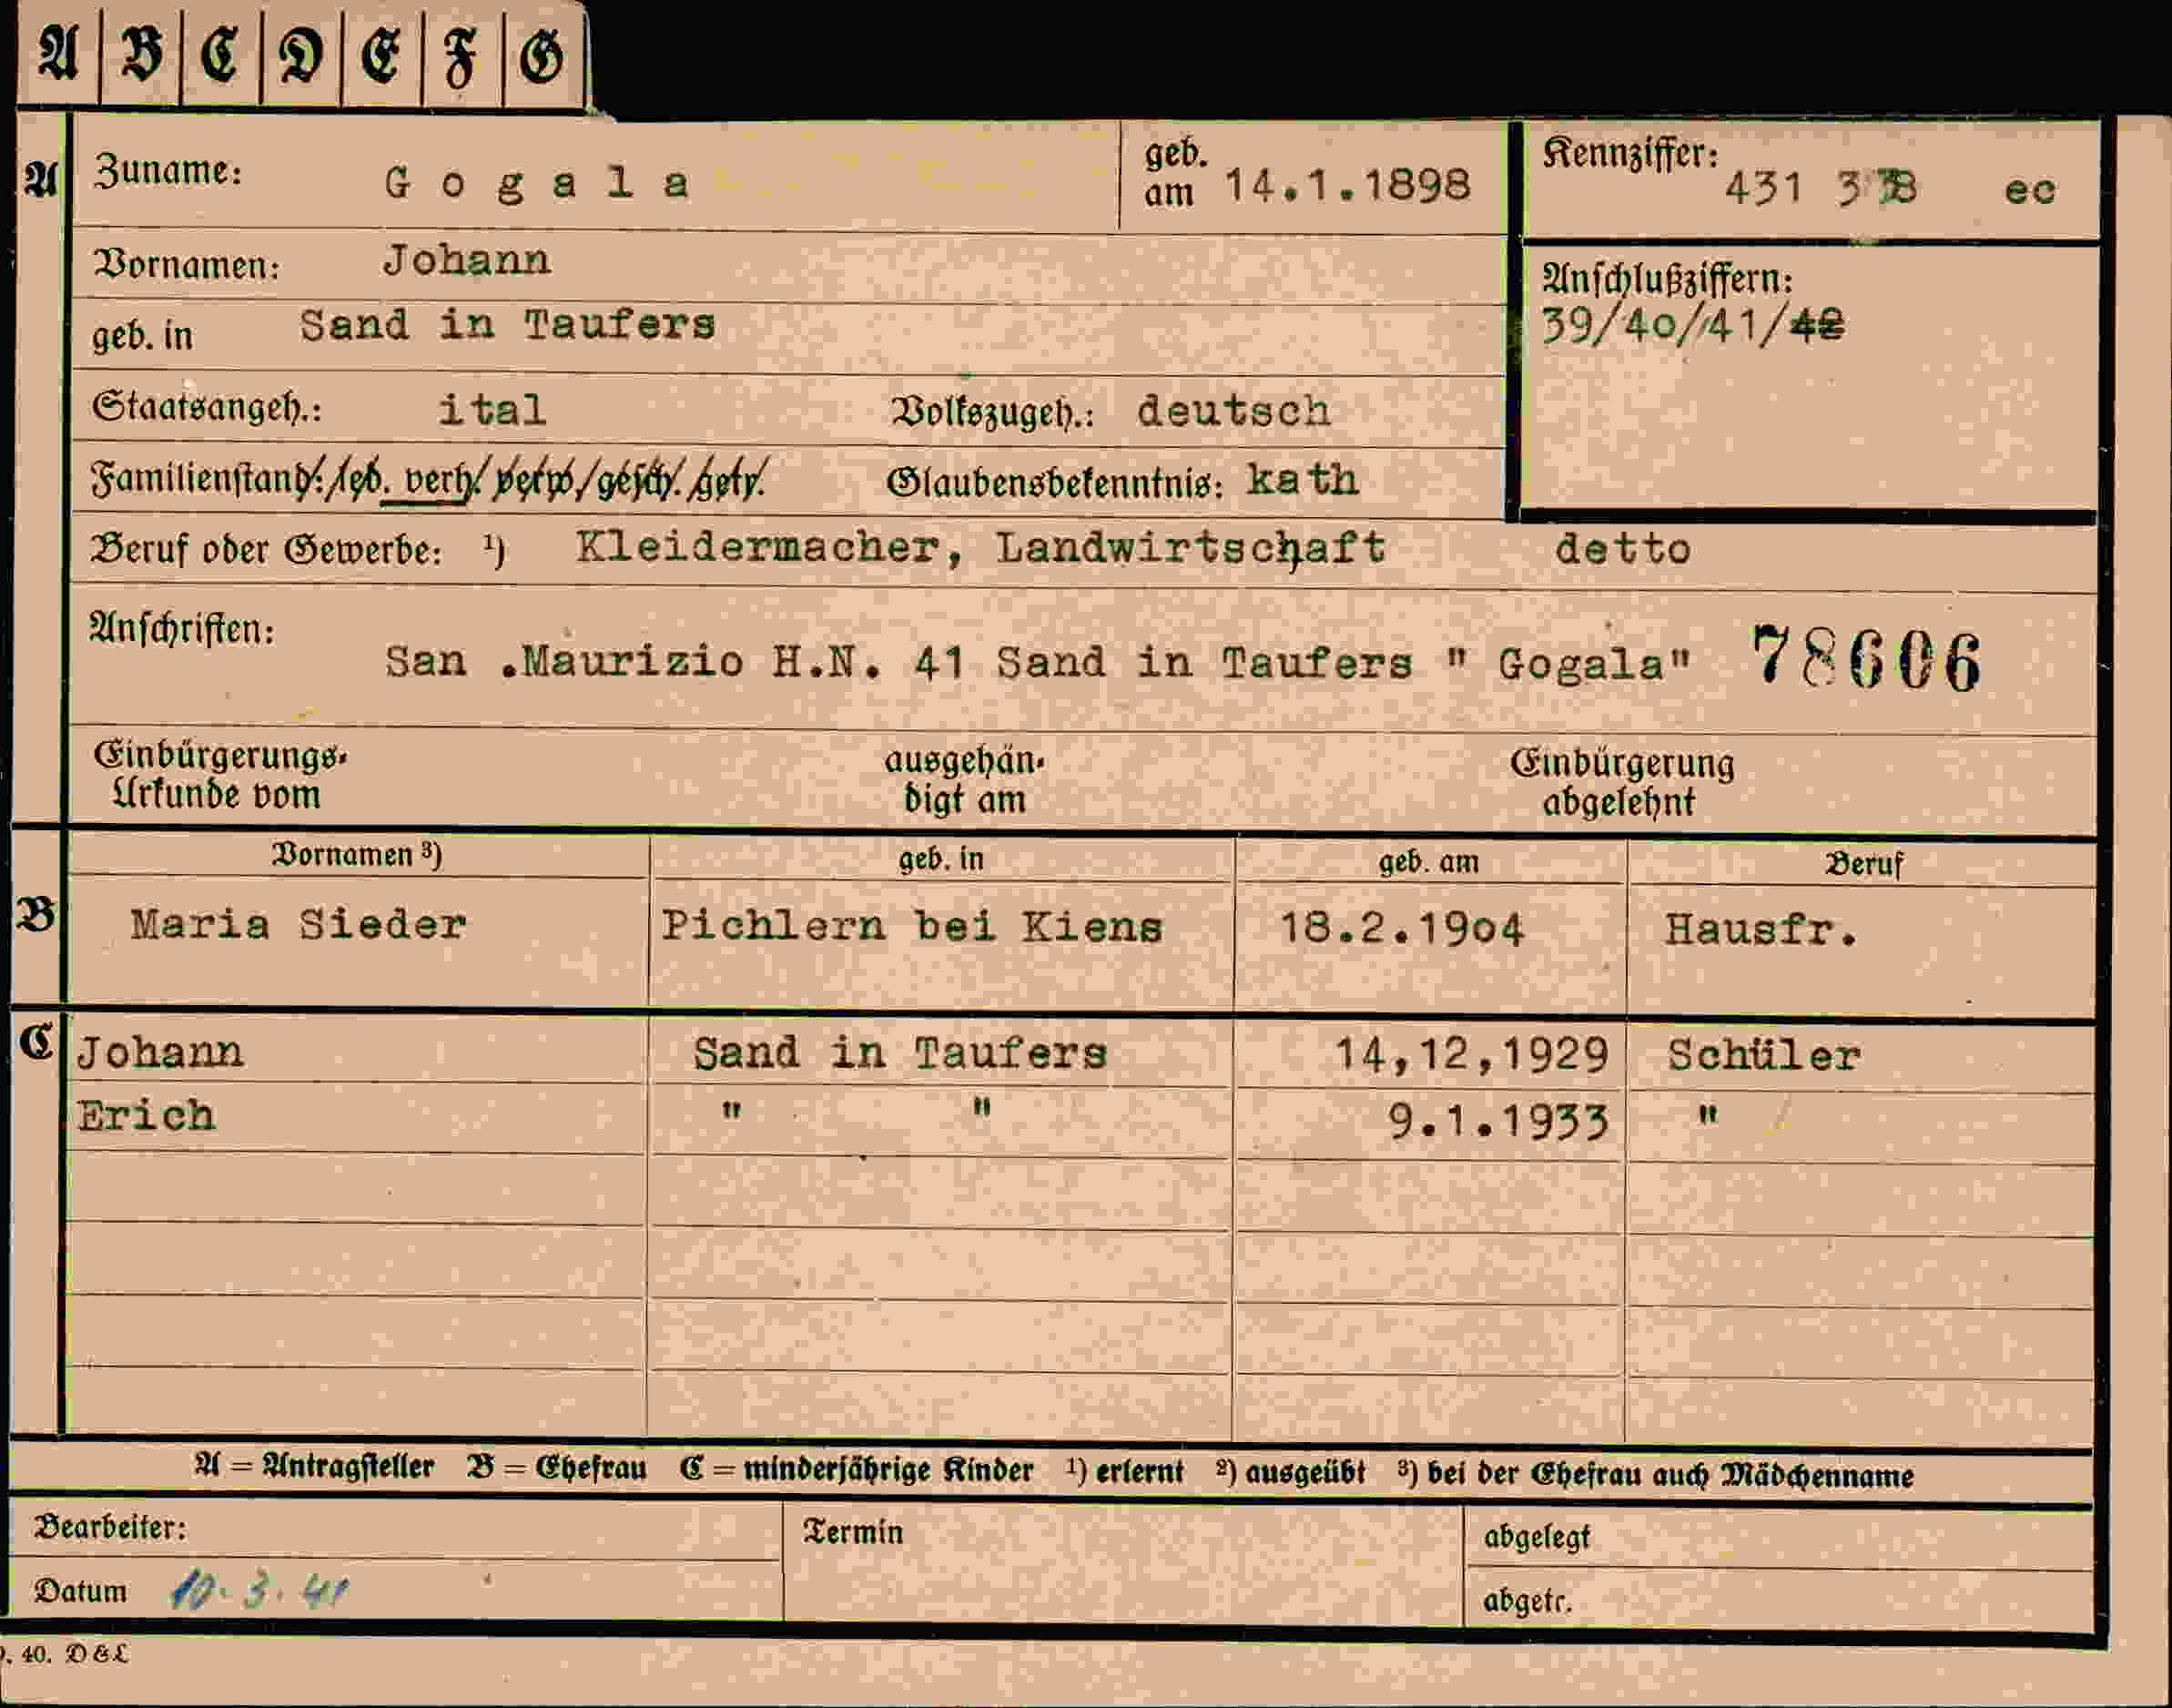 A B C D E F G
A Zuname: Gogala geb. am 14.1.1898 Kennziffer: 431 338 ec
Vornamen: Johann
Anschlußziffern:
geb. in Sand in Taufers 39/4o//41/42
Staatsangeh.: ital Volkszugeh.: deutsch
Familienstand: led. verh. verw. gesch. getr. Glaubensbekenntnis: kath
Beruf oder Gewerbe: ¹) Kleidermacher, Landwirtschaft detto
Anschriften: San .Maurizio H.N. 41 Sand in Taufers " Gogala" 78606
Einbürgerungs- ausgehän- Einbürgerung
Urkunde vom digt am abgelehnt
Vornamen ³) geb. in geb. am Beruf
B Maria Sieder Pichlern bei Kiens 18.2.19o4 Hausfr.
C Johann Sand in Taufers 14,12,1929 Schüler
Erich " " 9.1.1933 "
A = Antragsteller B = Ehefrau C = minderjährige Kinder ¹) erlernt ²) ausgeübt ³) bei der Ehefrau auch Mädchenname
Bearbeiter: Termin abgelegt
Datum 10.3.41 abgetr.
40. D&L